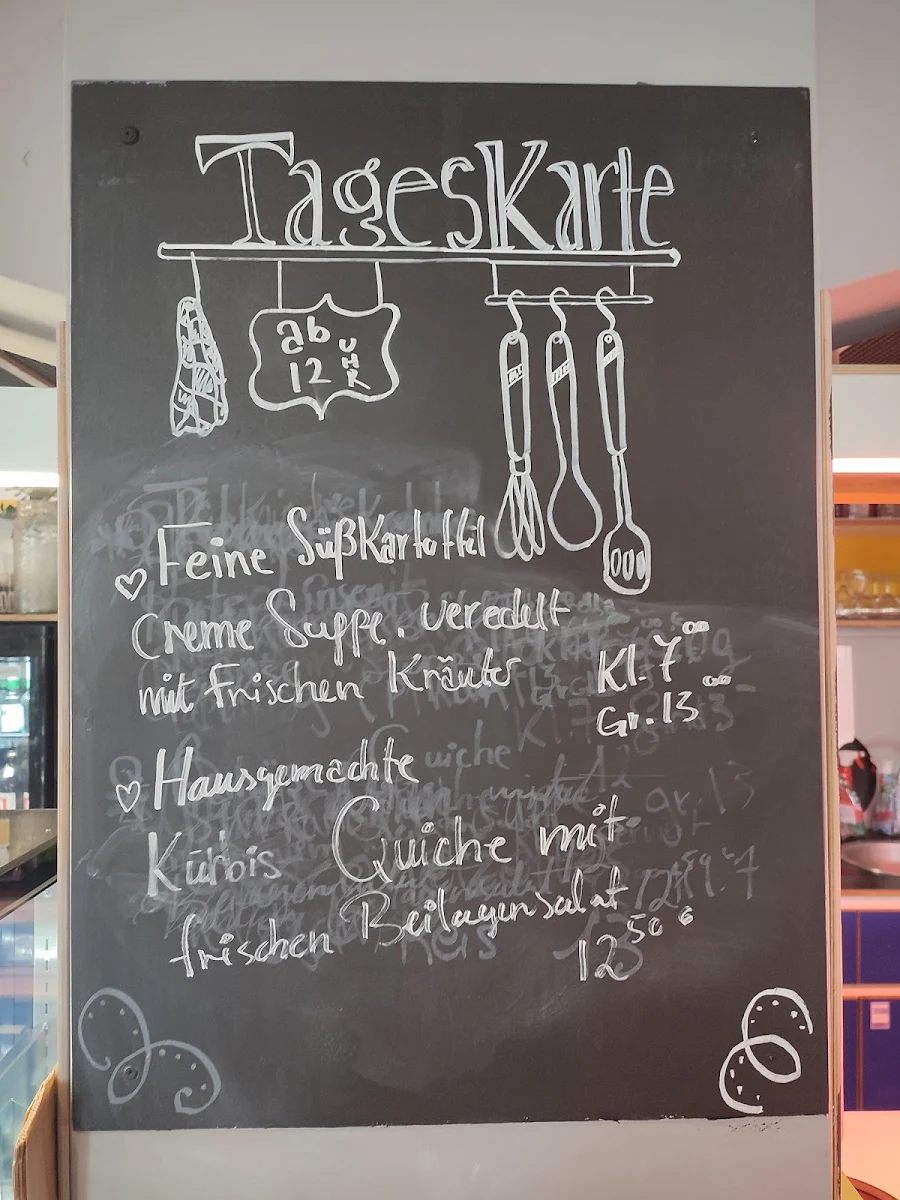 TagesKarte
ab
12 UHR
Feine Süßkartoffel
Creme Suppe. veredelt
mit frischen Kräuter
Kl. 7 00
Gr. 13 00
Hausgemachte
Kürbis Quiche mit
frischen Beilagensalat
12 50 €